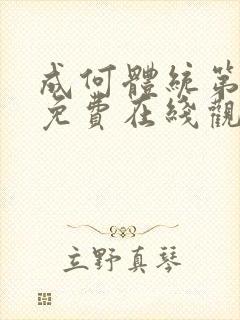 成何體統第
免費在綫觀
立野真琴